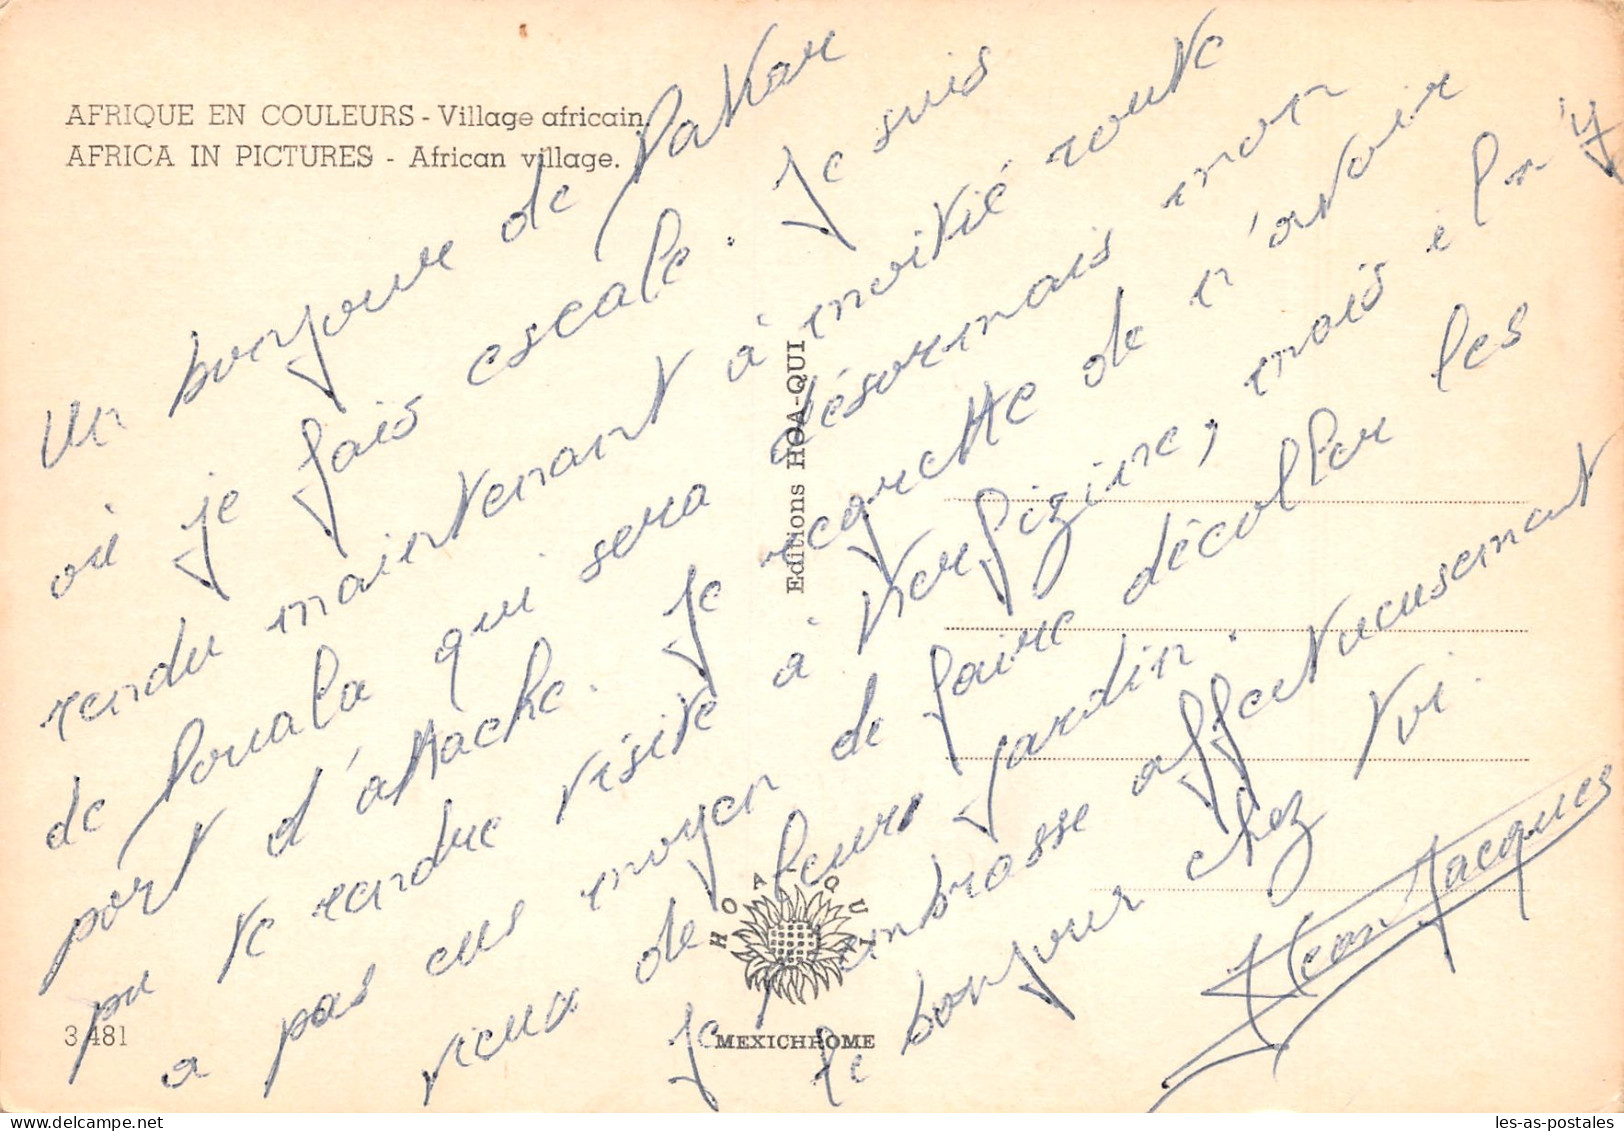 AFRIQUE EN COULEURS - Village africain.
AFRICA IN PICTURES - African village.
Un bonjour de Dakar
où je fais escale. Je suis
rendu maintenant à moitié route
de Douala qui sera désormais mon
port d'attache. Je regrette de n'avoir
pu te rendre visite à Vergizine, mais il n'y
a pas eus moyen de faire décoller les
vieux de leurs jardin.
Je t'embrasse affectueusement
le bonjour chez toi.
Jean Jacques
Editions HOA-QUI
HOA-QUI
MEXICHROME
3 481
les-as-postales